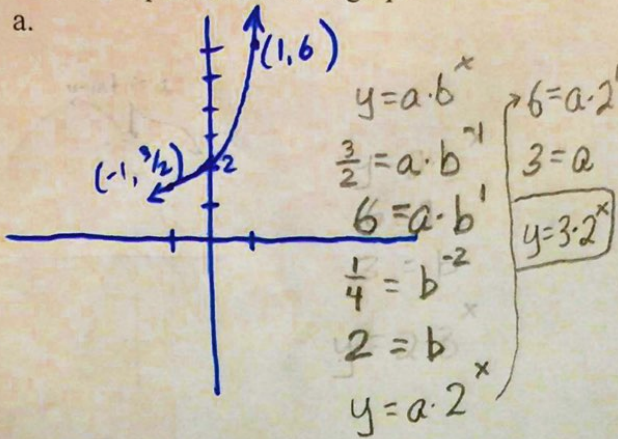 a.
(1,6)
(-1, 3/2)
2
y=a·b^x
3/2=a·b^-1
6=a·b^1
1/4=b^-2
2=b
y=a·2^x
6=a·2^1
3=a
y=3·2^x